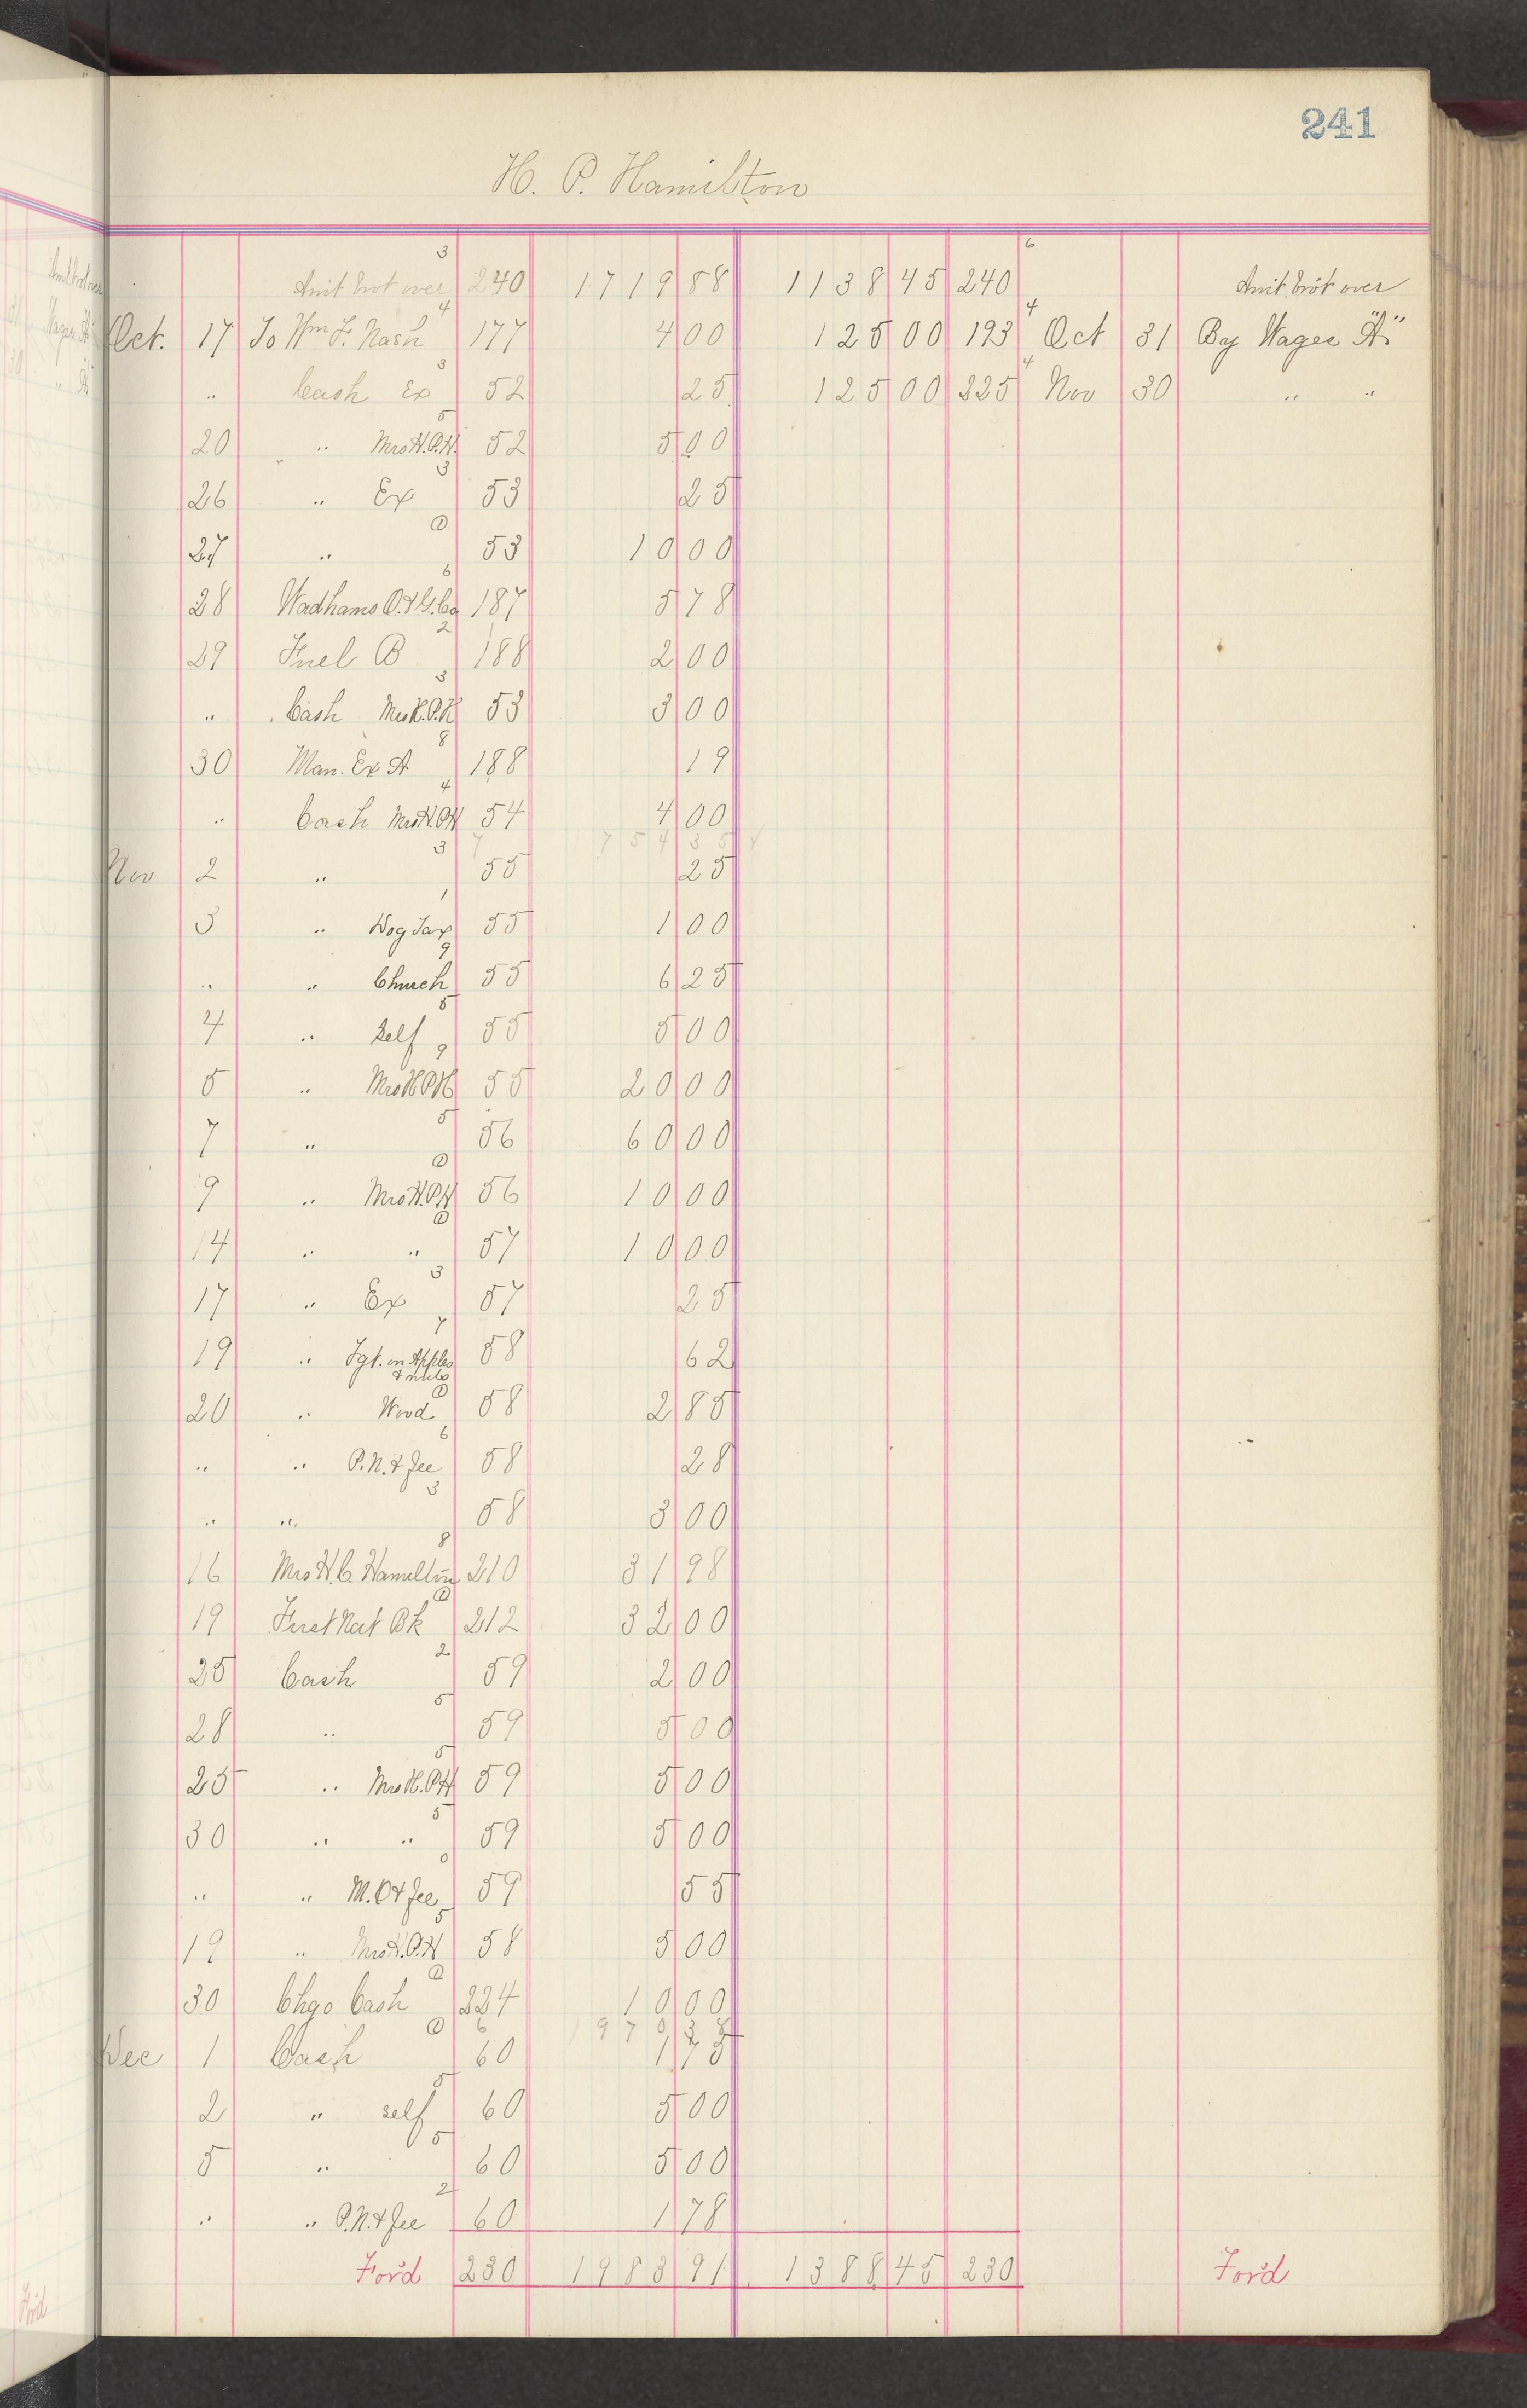 241
H. P. Hamilton
3 6
Amt brot over 240 1719 88 1138 45 240 Amt brot over
4 4
Oct. 17 To Wm F. Nash 177 4 00 125 00 193 Oct 31 By Wages "A"
3 4
" Cash Ex 52 25 125 00 225 Nov 30 " "
5
20 " Mrs H.P.H. 52 5 00
3
26 " Ex 53 25
0
27 " 53 10 00
6
28 Wadhams O.&G.Co 187 5 78
2
29 Fuel B 188 2 00
3
" Cash Mrs H.P.H 53 3 00
8
30 Man. Ex A 188 19
4
" Cash Mrs H.P.H 54 4 00
1754 35
3
Nov 2 " 55 25
1
3 " Dog Tax 55 1 00
9
" " Church 55 6 25
5
4 " Self 55 5 00
9
5 " Mrs H.P.H 55 20 00
5
7 " 56 60 00
0
9 " Mrs H.P.H 56 10 00
0
14 " " 57 10 00
3
17 " Ex 57 25
7
19 " Fgt. on Apples 58 62
& nuts
0
20 " Wood 58 2 85
6
" " P.N.& fee 58 28
3
" " 58 3 00
8
16 Mrs H.C. Hamilton 210 31 98
0
19 First Nat Bk 212 32 00
2
25 Cash 59 2 00
5
28 " 59 5 00
5
25 " Mrs H.P.H 59 5 00
5
30 " " 59 5 00
0
" " M.O & fee 59 55
5
19 " Mrs H.P.H 58 5 00
0
30 Chgo Cash 224 10 00
0 6 1970 38
Dec 1 Cash 60 1 75
5
2 " self 60 5 00
5
5 " 60 5 00
2
" " P.N.& fee 60 1 78
Ford 230 1983 91 1388 45 230 Ford